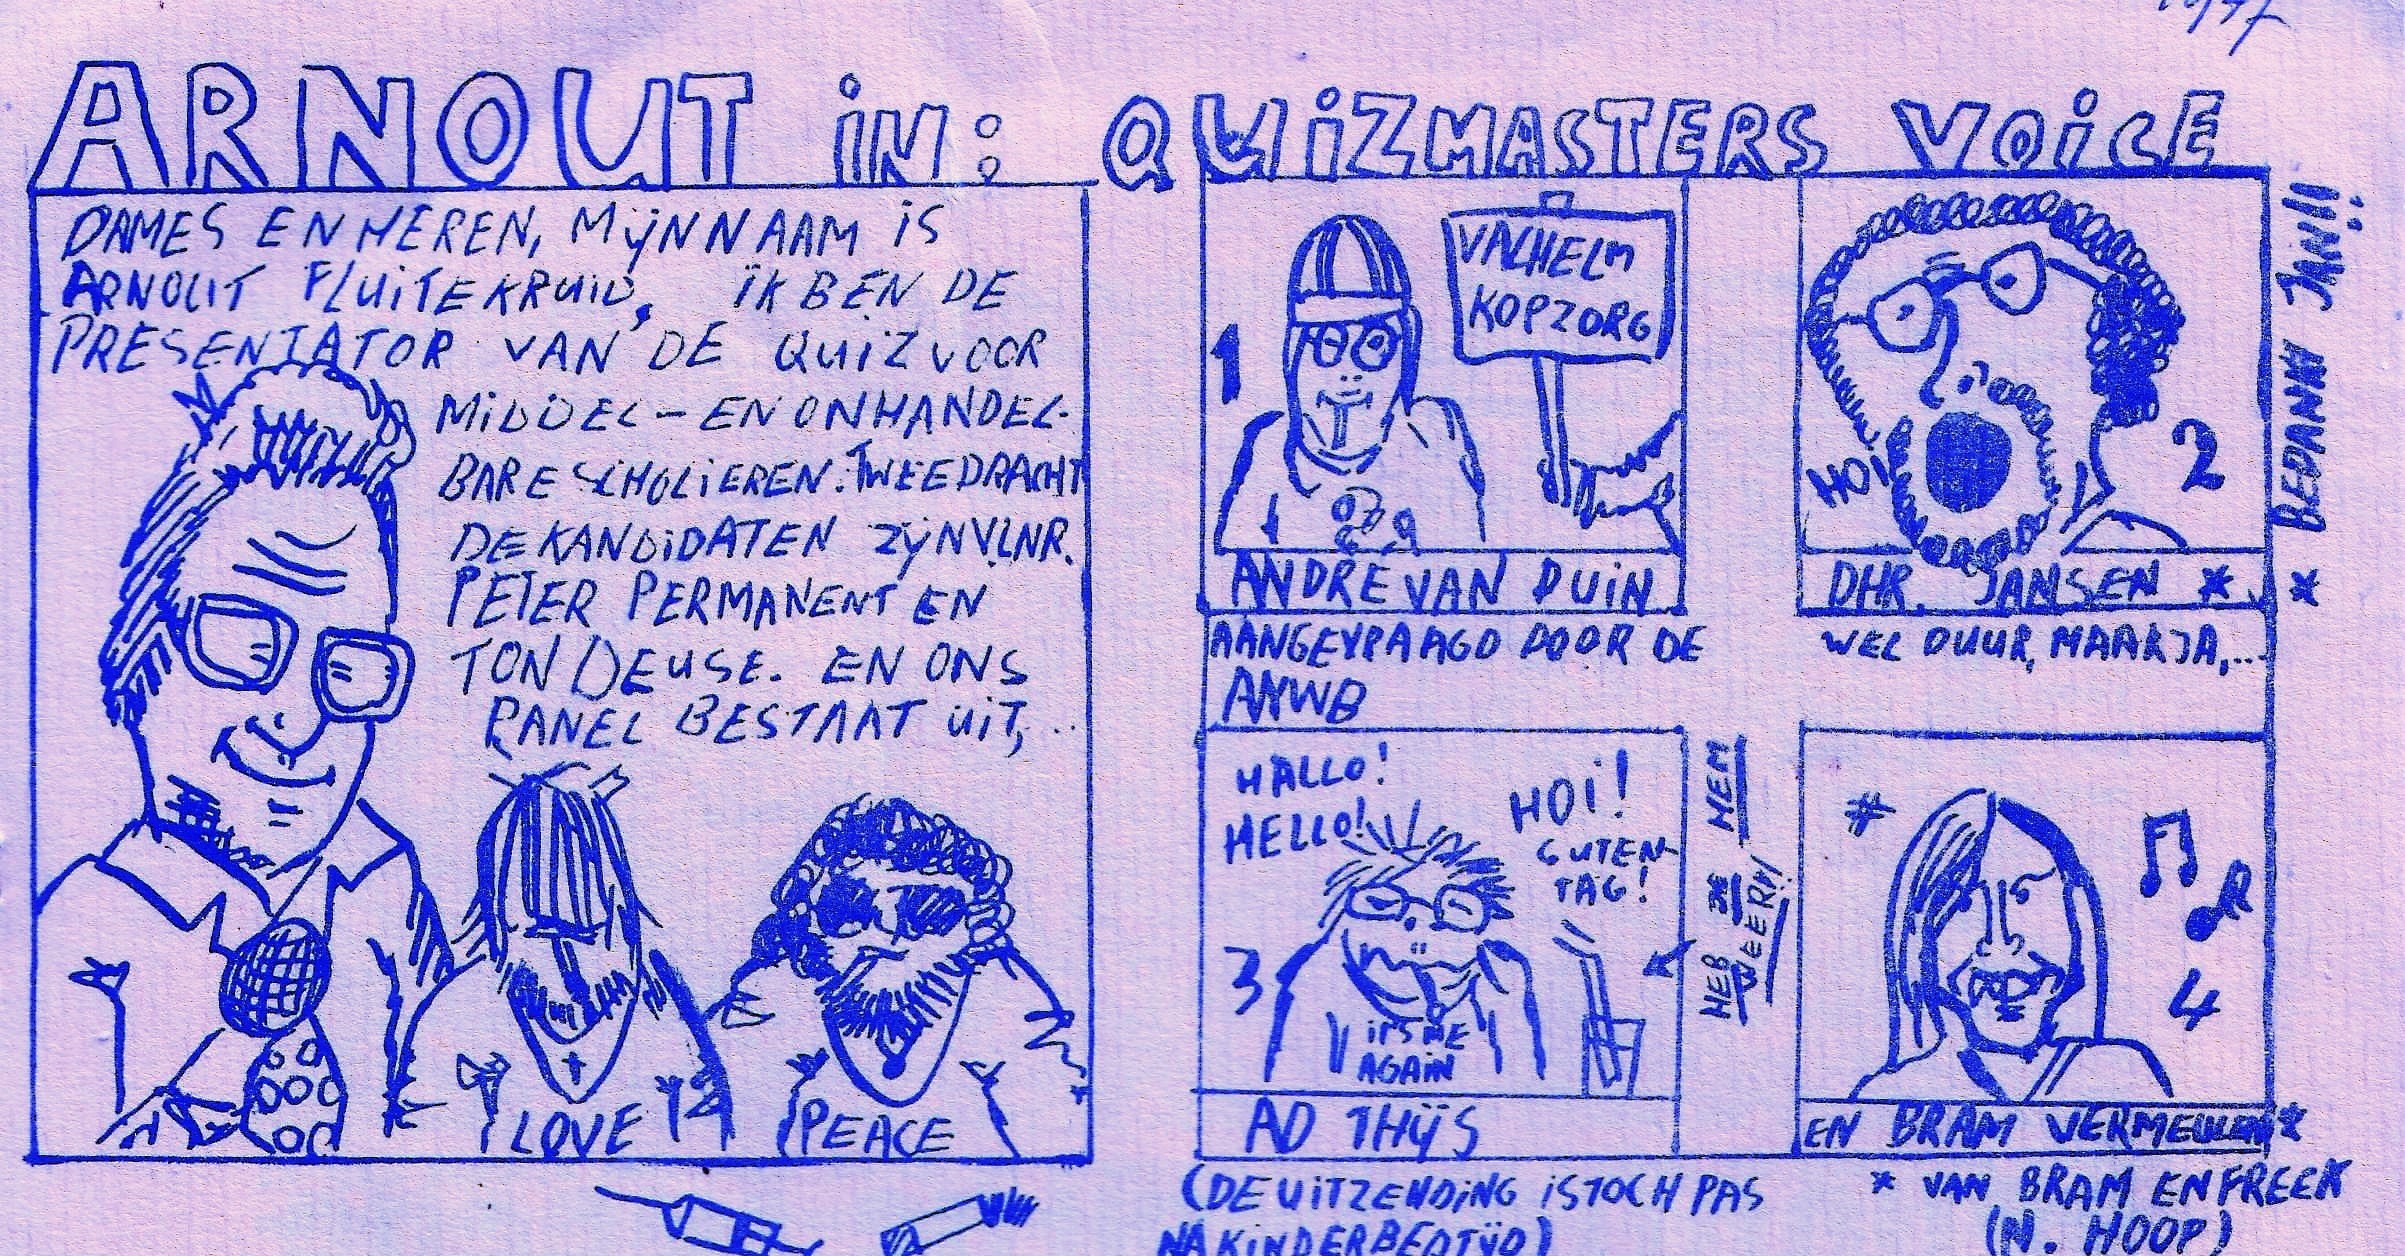 ARNOUT iN: QUiZMASTERS VOiCE
DAMES EN HEREN, MijN NAAM iS
ARNOUT FLUiTEKRUiD, iK BEN DE
PRESENTATOR VAN DE QUiZ VOOR
MiDDEL- EN ONHANDEL-
BARE SCHOLiEREN: TWEEDRACHT
DE KANDiDATEN ZijN V.L.N.R.
PETER PERMANENT EN
TON DEUSE. EN ONS
PANEL BESTAAT UiT,...
LOVE
PEACE
1
VALHELM
KOPZORG
ANDRE VAN DUiN
AANGEVRAAGD DOOR DE
ANWB
HOi
2
DHR. JANSEN *
WEL DUUR, MAAR JA,...
* BEDANKT JAN!!
HALLO!
HELLO!
HOi!
GUTEN-
TAG!
3
iTS ME
AGAiN
AD THijS
HEB JE
HEM
WEER!
(DE UiTZENDiNG iS TOCH PAS
NA KiNDERBEDTijD)
*
4
EN BRAM VERMEULEN *
* VAN BRAM EN FREEK
(N. HOOP)